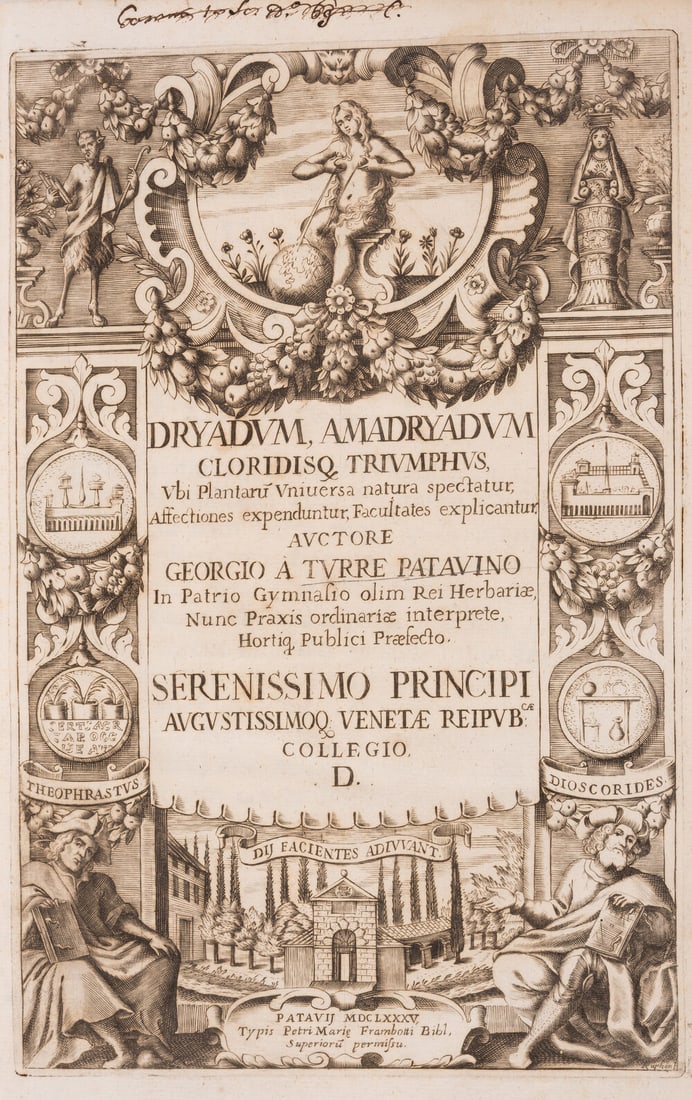 DRYADVM, AMADRYADVM
CLORIDISQ. TRIVMPHVS,
Vbi Plantarū Vniuersa natura spectatur,
Affectiones expenduntur, Facultates explicantur,
AVCTORE
GEORGIO A TVRRE PATAVINO
In Patrio Gymnasio olim Rei Herbariæ,
Nunc Praxis ordinariæ interprete,
Hortiq. Publici Præfecto.
SERENISSIMO PRINCIPI
AVGVSTISSIMOQ. VENETÆ REIPVB.CÆ
COLLEGIO.
D.
THEOPHRASTVS
DIOSCORIDES.
DIJ FACIENTES ADIVVANT.
PATAVIJ MDCLXXXV,
Typis Petri Marię Frambotti Bibl,
Superiorū permissu.